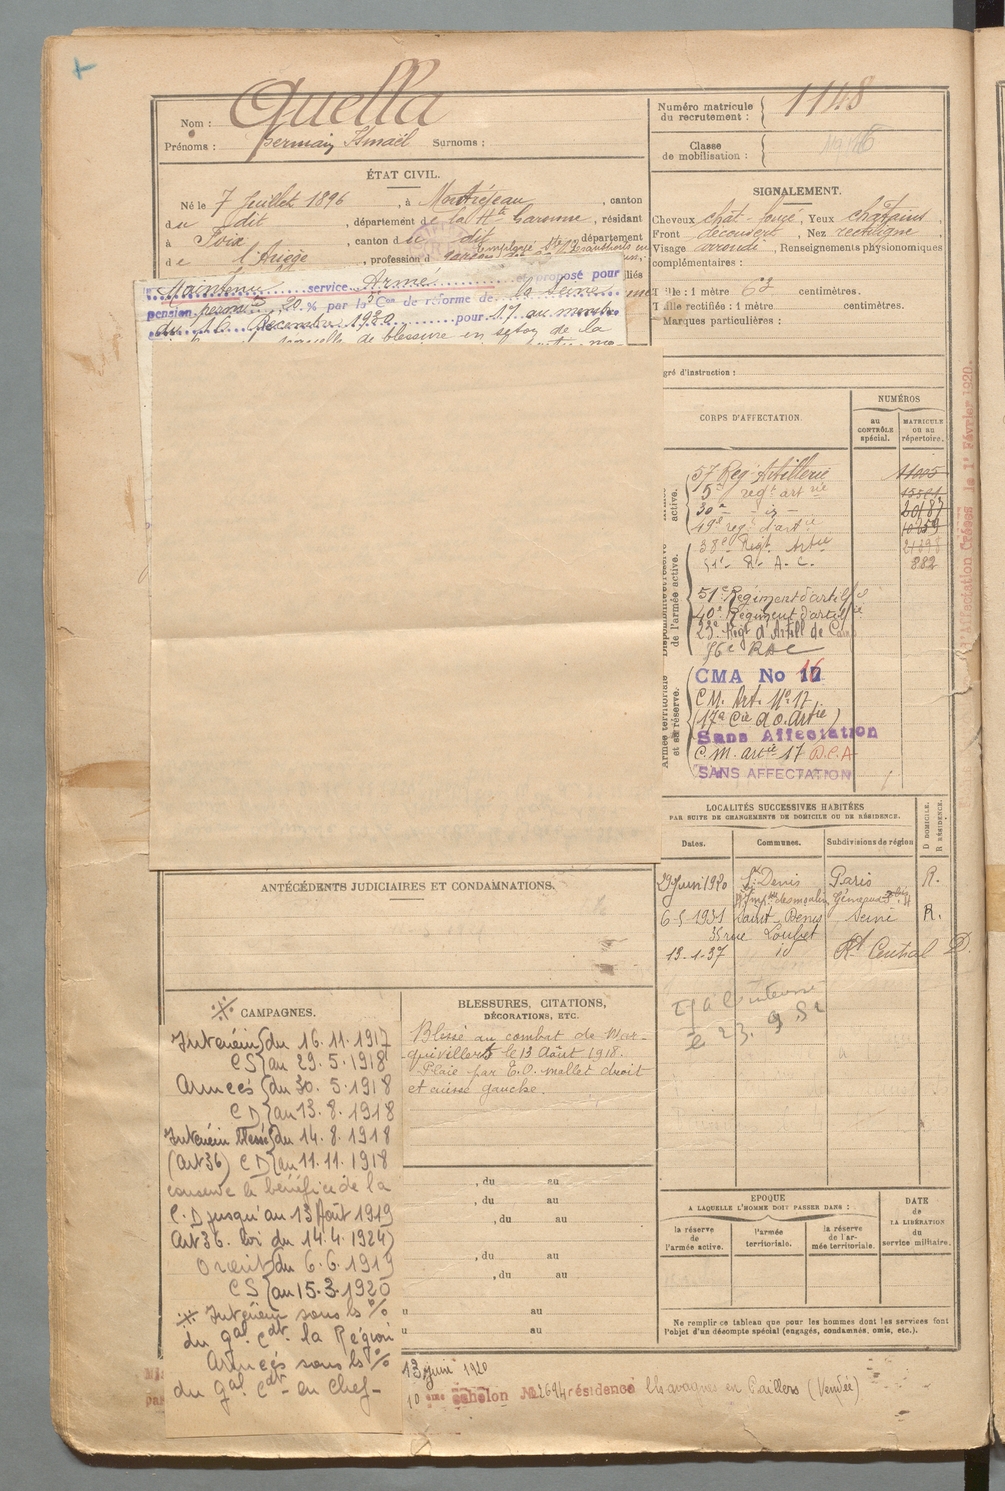 Quella
Nom :
Prénoms : Germain Ismaël Surnoms :
Numéro matricule du recrutement : 1148
Classe de mobilisation :
ÉTAT CIVIL.
Né le 7 Juillet 1896, à Montréjeau, canton
du dit, département de la Hte Garonne, résidant
à Foix, canton du dit, département
de l'Ariège, profession d
SIGNALEMENT.
Cheveux chat. foncé, Yeux chatains,
Front découvert, Nez rectiligne
Visage arrondi, Renseignements physionomiques
complémentaires :
Taille : 1 mètre 62 centimètres.
Taille rectifiée : 1 mètre centimètres.
Marques particulières :
Maintenu service Armé et proposé pour
pension perman 20 % par la Con de réforme de la Seine
du 16 Décembre 1930 pour
de blessure en séton de la
gré d'instruction :
CORPS D'AFFECTATION.
NUMÉROS
au CONTRÔLE spécial.
MATRICULE ou au répertoire.
57 Reg. Artillerie 11005
5e regt artrie
30e - id - 20187
49e reg. d'artie 10259
38e Regt Artie
51e R. A. C. 882
51e Régiment d'artillie
40e Régiment d'artillie
23e Régt d'Artill de Camp
R A C
CMA No 16
C. M. Art. No 17
(17e Cie d'O. Artie)
Sans Affectation
C. M. artie 17 D.C.A
SANS AFFECTATION
Armée territoriale et sa réserve.
Disponibilité et réserve de l'armée active.
active.
le 1er Février 1920.
LOCALITÉS SUCCESSIVES HABITÉES
PAR SUITE DE CHANGEMENTS DE DOMICILE OU DE RÉSIDENCE.
Dates. Communes. Subdivisions de région D DOMICILE. R RÉSIDENCE.
29 Juin 1920 St Denis Paris R.
6-5-1931 Saint-Denis Seine R.
35 rue Loubet
13-1-37 id Rt Central D.
23. 9 52
ANTÉCÉDENTS JUDICIAIRES ET CONDAMNATIONS.
CAMPAGNES.
Intérieur du 16.11.1917
CS au 29.5.1918
Armées du 30.5.1918
CD au 13.8.1918
Intérieur blessé du 14.8.1918
(Art 36) CD au 11.11.1918
conserve le bénéfice de la
C.D jusqu'au 13 Août 1919
Art 36. Loi du 14.4.1924)
Orient du 6.6.1919
CS au 15.3.1920
※ Intérieur sous ls %
du gal Cdt la Région
Armées sous ls %
du gal Cdt en Chef-
BLESSURES, CITATIONS,
DÉCORATIONS, ETC.
Blessé au combat de Mar-
quivillers le 13 Août 1918.
Plaie par E.O. mollet droit
et cuisse gauche.
, du au
, du au
, du au
, du au
, du au
au
au
EPOQUE
A LAQUELLE L'HOMME DOIT PASSER DANS :
la réserve de l'armée active.
l'armée territoriale.
la réserve de l'armée territoriale.
DATE de LA LIBÉRATION du service militaire.
Ne remplir ce tableau que pour les hommes dont les services font
l'objet d'un décompte spécial (engagés, condamnés, omis, etc.).
13 juin 1920
10 ème échelon No résidence Chavagnes en Paillers (Vendée)